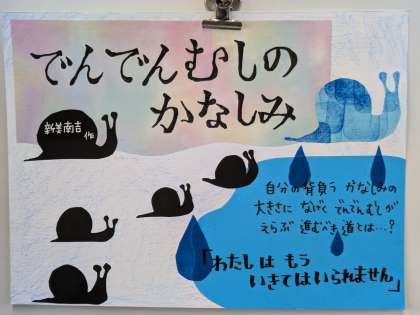 でんでんむしの
かなしみ
新美南吉
作
自分の背負う かなしみの
大きさに なげく でんでんむしが
えらぶ 進むべき道とは…?
「わたしは もう
いきてはいられません」